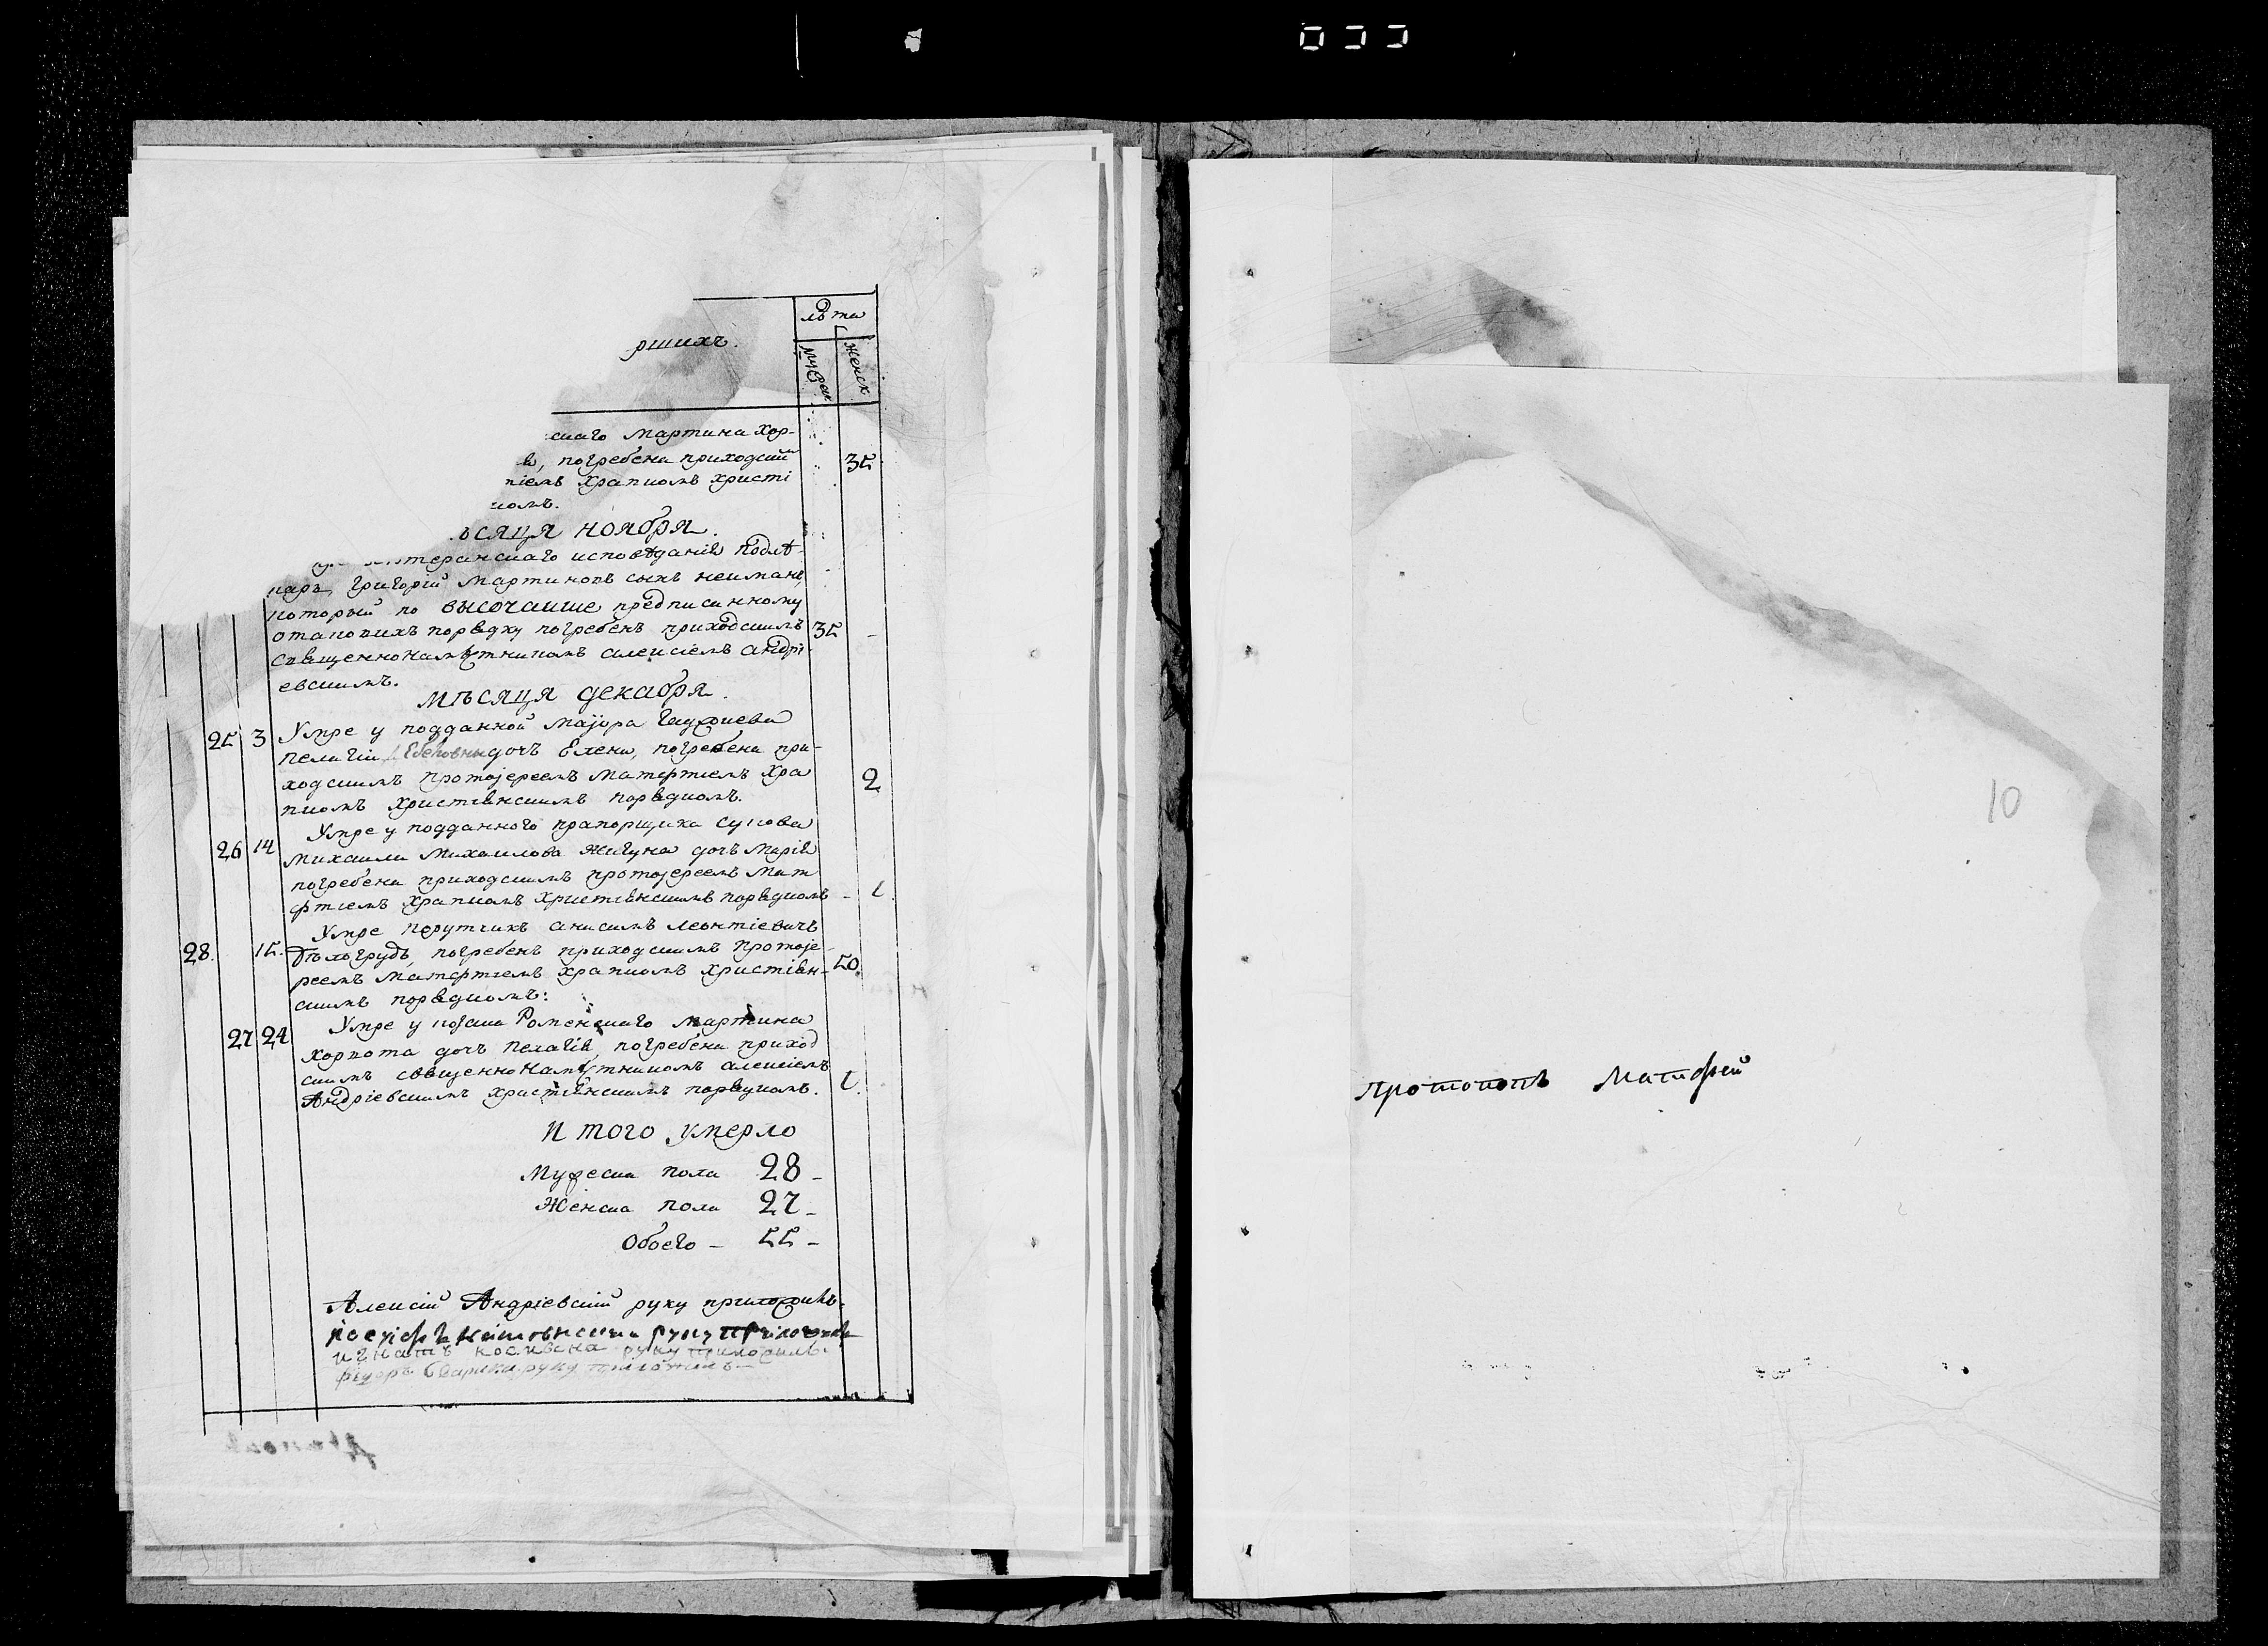 лѣта
ршихъ.
мужеск
женск
скаго Мартина Хор-
а, погребена приходским
ніемъ Храпкомъ христі
комъ.
ѣсяца ноября.
лютеранскаго исповѣданія подлѣ-
карь, Григорій Мартиновъ сынъ Нейманъ,
который по высочайше предписанному
отаковихъ порядку погребенъ приходскимъ 35 -
священнонамѣстникомъ Алексіемъ Андрі-
евскимъ.
Мѣсяца декабря.
25 3 Умре у подданной маіора
Пелагіи дочь Елена, погребена при-
ходскимъ протоіереемъ Матфтіемъ Хра 2
пкомъ христіянскимъ порядкомъ.
Умре у подданного прапорщика Сукова
26 14 Михаила Михаилова Жигуна дочь Марія
погребена приходскимъ протоіереемъ Мат
фтіемъ Храпкомъ христіянскимъ порядкомъ - 1.
Умре порутчикъ Анисимъ Леонтіевичъ
28. 15. Бѣлогрудъ, погребенъ приходскимъ протоіе-
реемъ Матфтіемъ Храпкомъ христіян- 50.
скимъ порядкомъ:
27 24 Умре у козака Роменскаго Мартина
Хорхота дочь Пелагія, погребена приход
скимъ священнонамѣстникомъ Алексіемъ
Андріевскимъ христіянскимъ порядкомъ. 1.
Итого умерло
Мужеска пола 28 -
Женска пола 27 -
Обоего - 55 -
Алексій Андріевскій руку приложилъ.
руку приложилъ
Игнатъ руку приложилъ.
Федоръ руку приложилъ -
10
Протопопъ Матфей